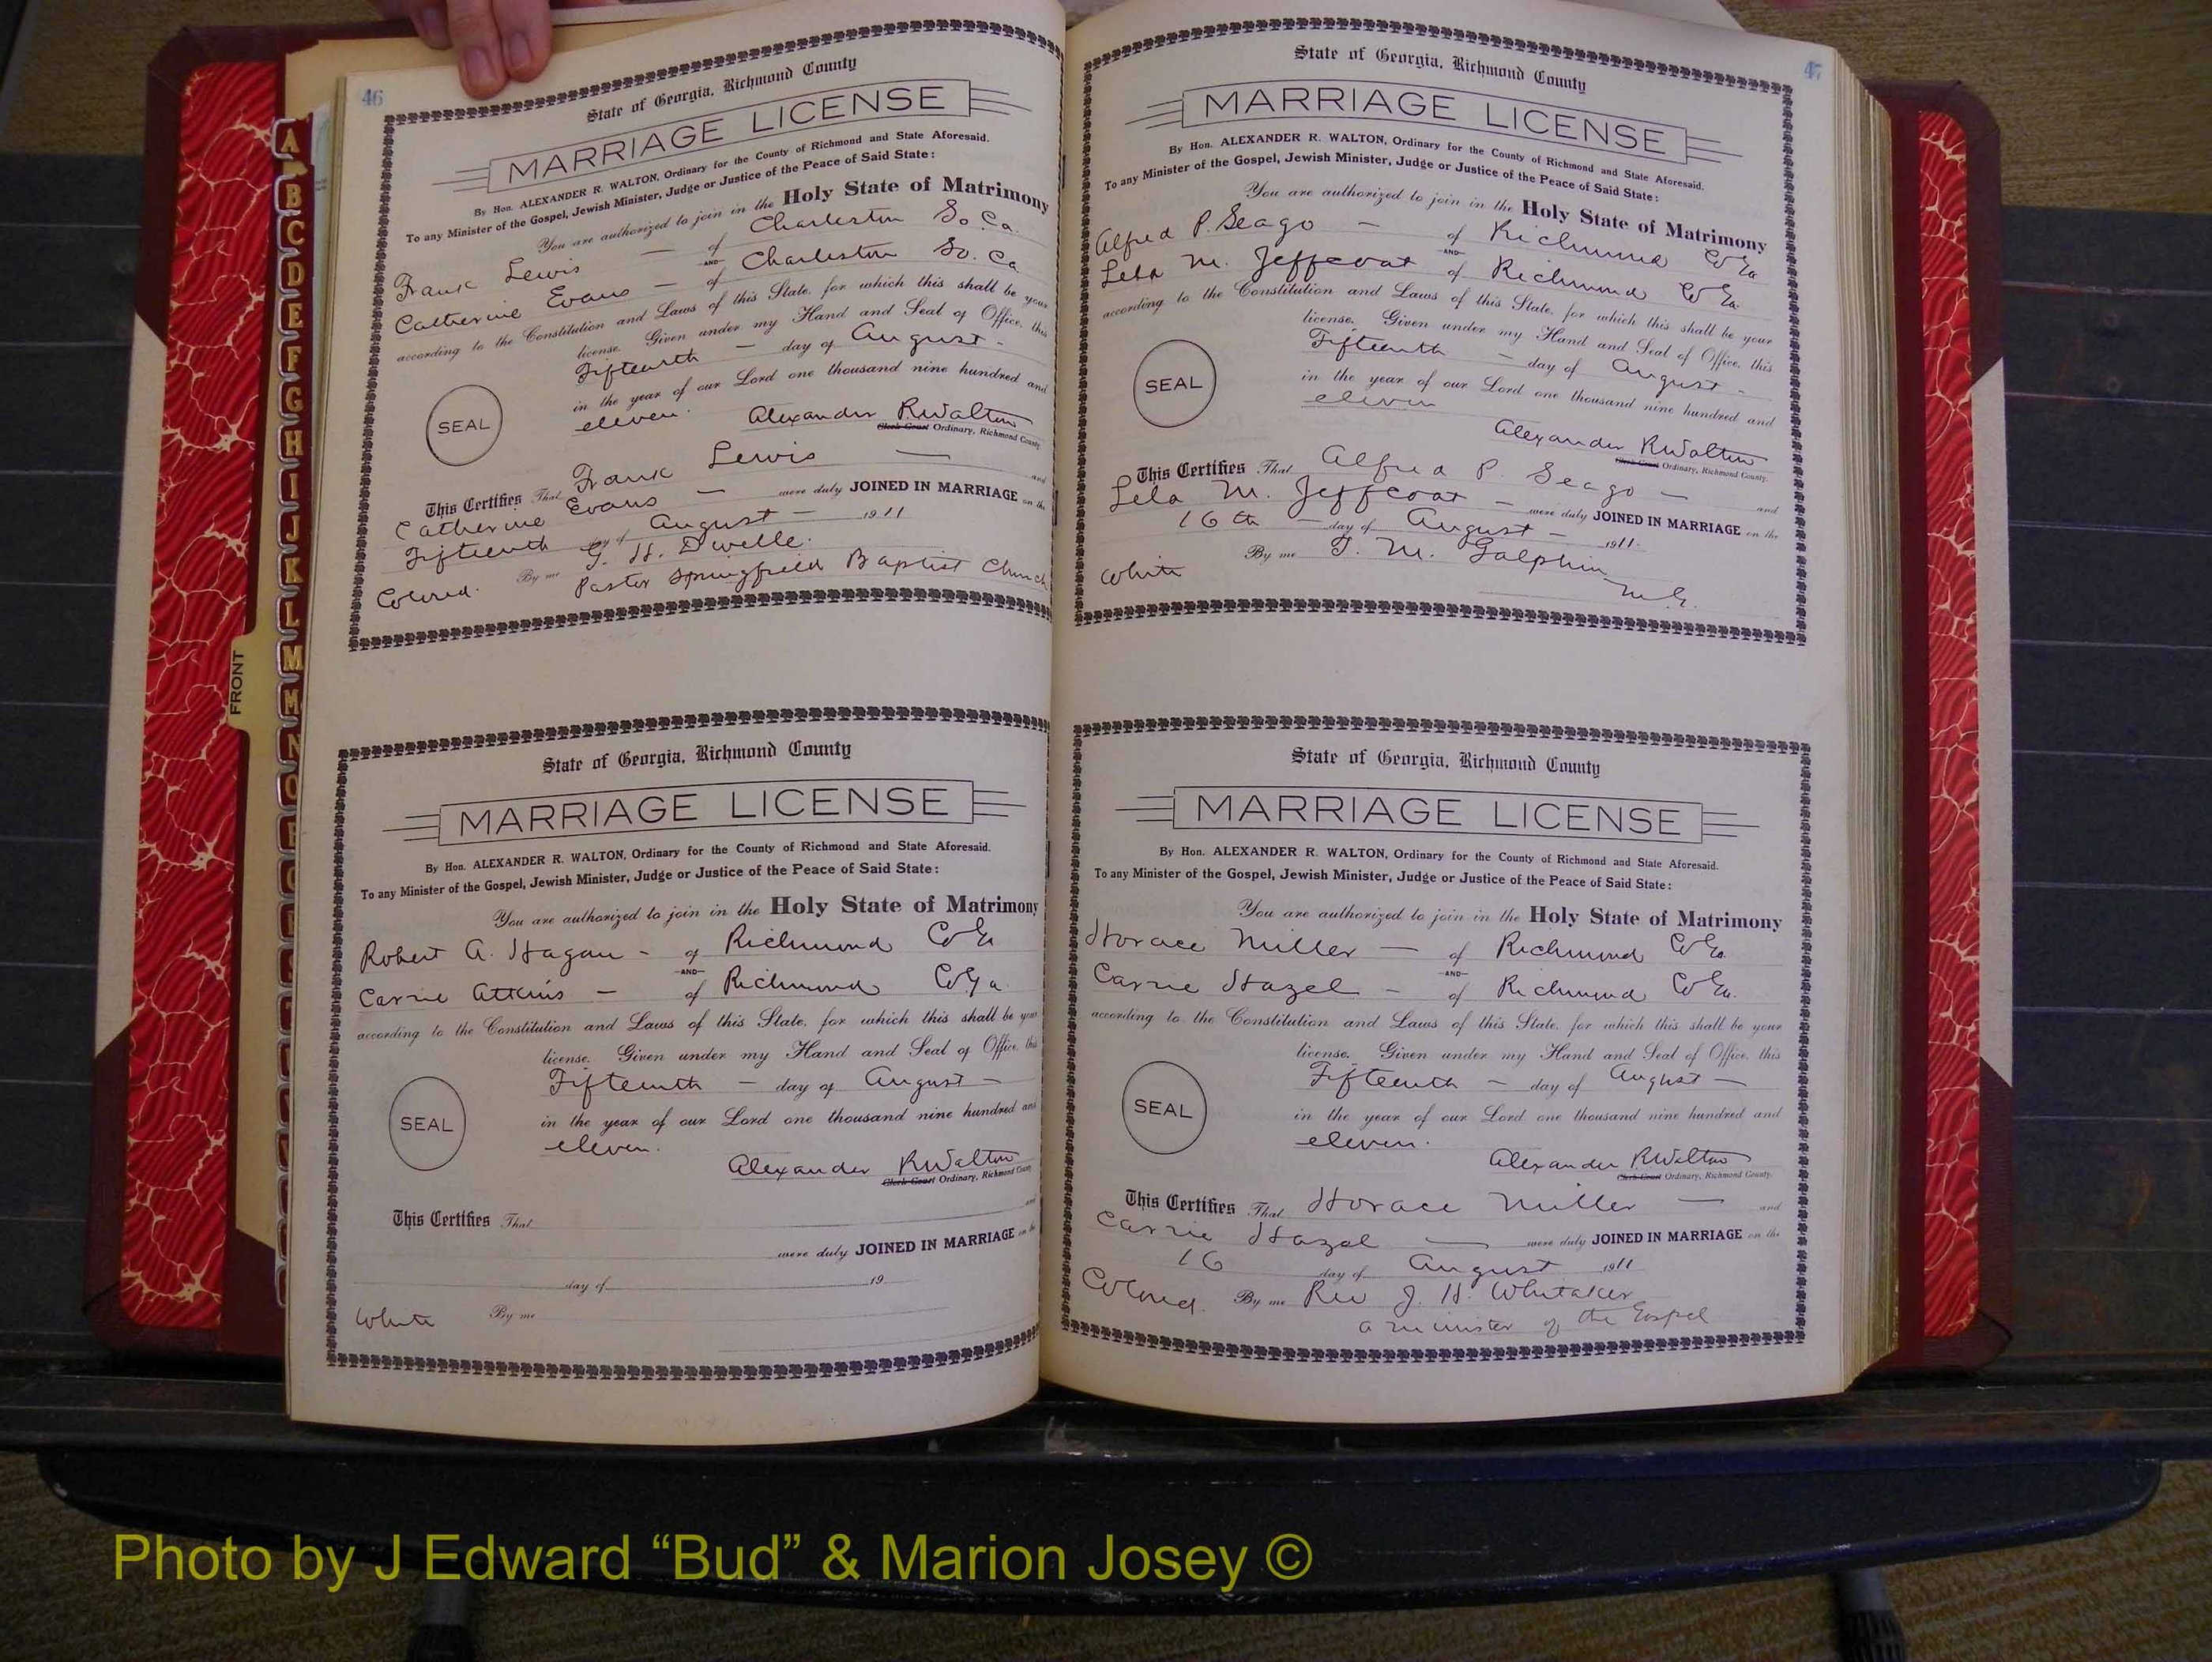 46
State of Georgia, Richmond County
MARRIAGE LICENSE
By Hon. ALEXANDER R. WALTON, Ordinary for the County of Richmond and State Aforesaid.
To any Minister of the Gospel, Jewish Minister, Judge or Justice of the Peace of Said State:
You are authorized to join in the Holy State of Matrimony
Frank Lewis — of Charleston So. Ca.
AND
Catherine Evans — of Charleston So. Ca
according to the Constitution and Laws of this State, for which this shall be your
license. Given under my Hand and Seal of Office, this
Fifteenth — day of August -
in the year of our Lord one thousand nine hundred and
eleven.
SEAL
Alexander R Walton
Clerk Court Ordinary, Richmond County.
This Certifies That Frank Lewis — and
Catherine Evans — were duly JOINED IN MARRIAGE on the
Fifteenth day of August — 1911
Colored. By me G. H. Dwelle.
Pastor Springfield Baptist Church
State of Georgia, Richmond County
MARRIAGE LICENSE
By Hon. ALEXANDER R. WALTON, Ordinary for the County of Richmond and State Aforesaid.
To any Minister of the Gospel, Jewish Minister, Judge or Justice of the Peace of Said State:
You are authorized to join in the Holy State of Matrimony
Robert A. Hagan - of Richmond Co Ga
AND
Carrie Atkins — of Richmond Co Ga
according to the Constitution and Laws of this State, for which this shall be your
license. Given under my Hand and Seal of Office, this
Fifteenth — day of August —
in the year of our Lord one thousand nine hundred and
eleven.
SEAL
Alexander R Walton
Clerk Court Ordinary, Richmond County
This Certifies That and
were duly JOINED IN MARRIAGE on the
day of 19
White By me
47
State of Georgia, Richmond County
MARRIAGE LICENSE
By Hon. ALEXANDER R. WALTON, Ordinary for the County of Richmond and State Aforesaid.
To any Minister of the Gospel, Jewish Minister, Judge or Justice of the Peace of Said State:
You are authorized to join in the Holy State of Matrimony
Alfred P. Seago — of Richmond Co Ga
AND
Lela M. Jeffcoat of Richmond Co Ga.
according to the Constitution and Laws of this State, for which this shall be your
license. Given under my Hand and Seal of Office, this
Fifteenth — day of August -
in the year of our Lord one thousand nine hundred and
eleven
SEAL
Alexander R Walton
Clerk Court Ordinary, Richmond County.
This Certifies That Alfred P. Seago — and
Lela M. Jeffcoat — were duly JOINED IN MARRIAGE on the
16th — day of August — 1911.
White By me T. M. Galphin
M.G.
State of Georgia, Richmond County
MARRIAGE LICENSE
By Hon. ALEXANDER R. WALTON, Ordinary for the County of Richmond and State Aforesaid.
To any Minister of the Gospel, Jewish Minister, Judge or Justice of the Peace of Said State:
You are authorized to join in the Holy State of Matrimony
Horace Miller — of Richmond Co Ga.
AND
Carrie Hazel — of Richmond Co Ga.
according to the Constitution and Laws of this State, for which this shall be your
license. Given under my Hand and Seal of Office, this
Fifteenth — day of August —
in the year of our Lord one thousand nine hundred and
eleven.
SEAL
Alexander R Walton
Clerk Court Ordinary, Richmond County.
This Certifies That Horace Miller — and
Carrie Hazel — were duly JOINED IN MARRIAGE on the
16 day of August 1911
Colored. By me Rev J. H. Whitaker
a minister of the Gospel
A
B
C
D
E
F
G
H
I
J
K
L
M
M
N
O
FRONT
Photo by J Edward “Bud” & Marion Josey ©